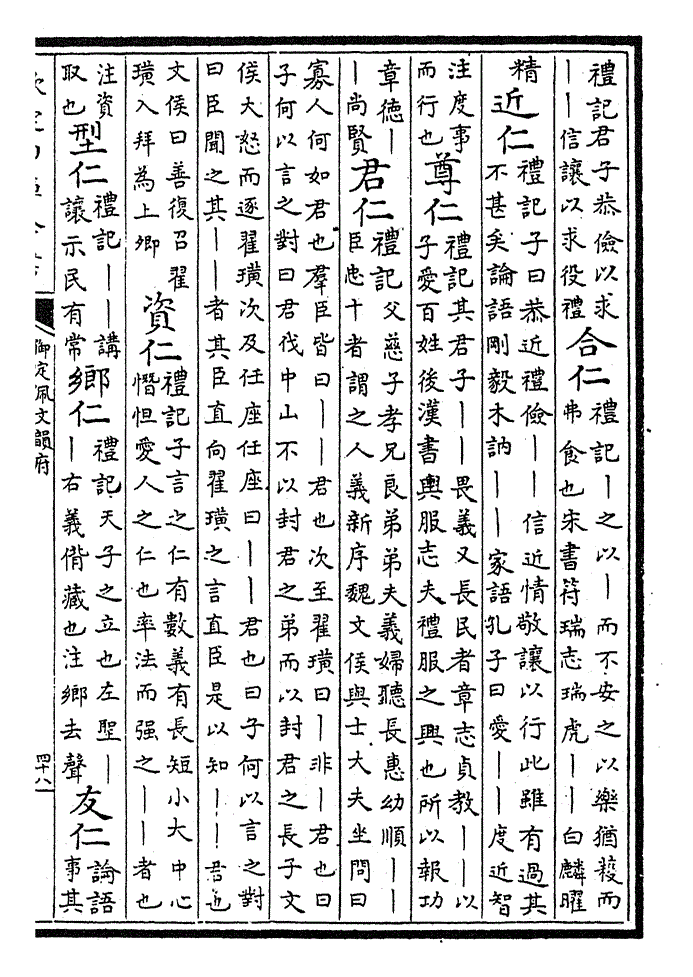 禮記君子恭儉以求
丨丨信讓以求役禮
合仁
禮記丨之以丨而不安之以樂猶穫而
弗食也宋書符瑞志瑞虎丨丨白麟曜
精
近仁
禮記子曰恭近禮儉丨丨信近情敬讓以行此雖有過其
不甚矣論語剛毅木訥丨丨家語孔子曰愛丨丨度近智
注度事
而行也
尊仁
禮記其君子丨丨畏義又長民者章志貞教丨丨以
子愛百姓後漢書輿服志夫禮服之興也所以報功
章德丨
丨尚賢
君仁
禮記父慈子孝兄良弟弟夫義婦聽長惠幼順丨丨
臣忠十者謂之人義新序魏文侯與士大夫坐問曰
寡人何如君也羣臣皆曰丨丨君也次至翟璜曰丨非丨君也曰
子何以言之對曰君伐中山不以封君之弟而以封君之長子文
侯大怒而逐翟璜次及任座任座曰丨丨君也曰子何以言之對
曰臣聞之其丨丨者其臣直向翟璜之言直臣是以知丨丨君也
文侯曰善復召翟
璜入拜為上卿
資仁
禮記子言之仁有數義有長短小大中心
憯怛愛人之仁也率法而强之丨丨者也
注資
取也
型仁
禮記丨丨講
讓示民有常
鄉仁
禮記天子之立也左聖丨
丨右義偝藏也注鄉去聲
友仁
論語
事其
御定佩文韻府
四十八